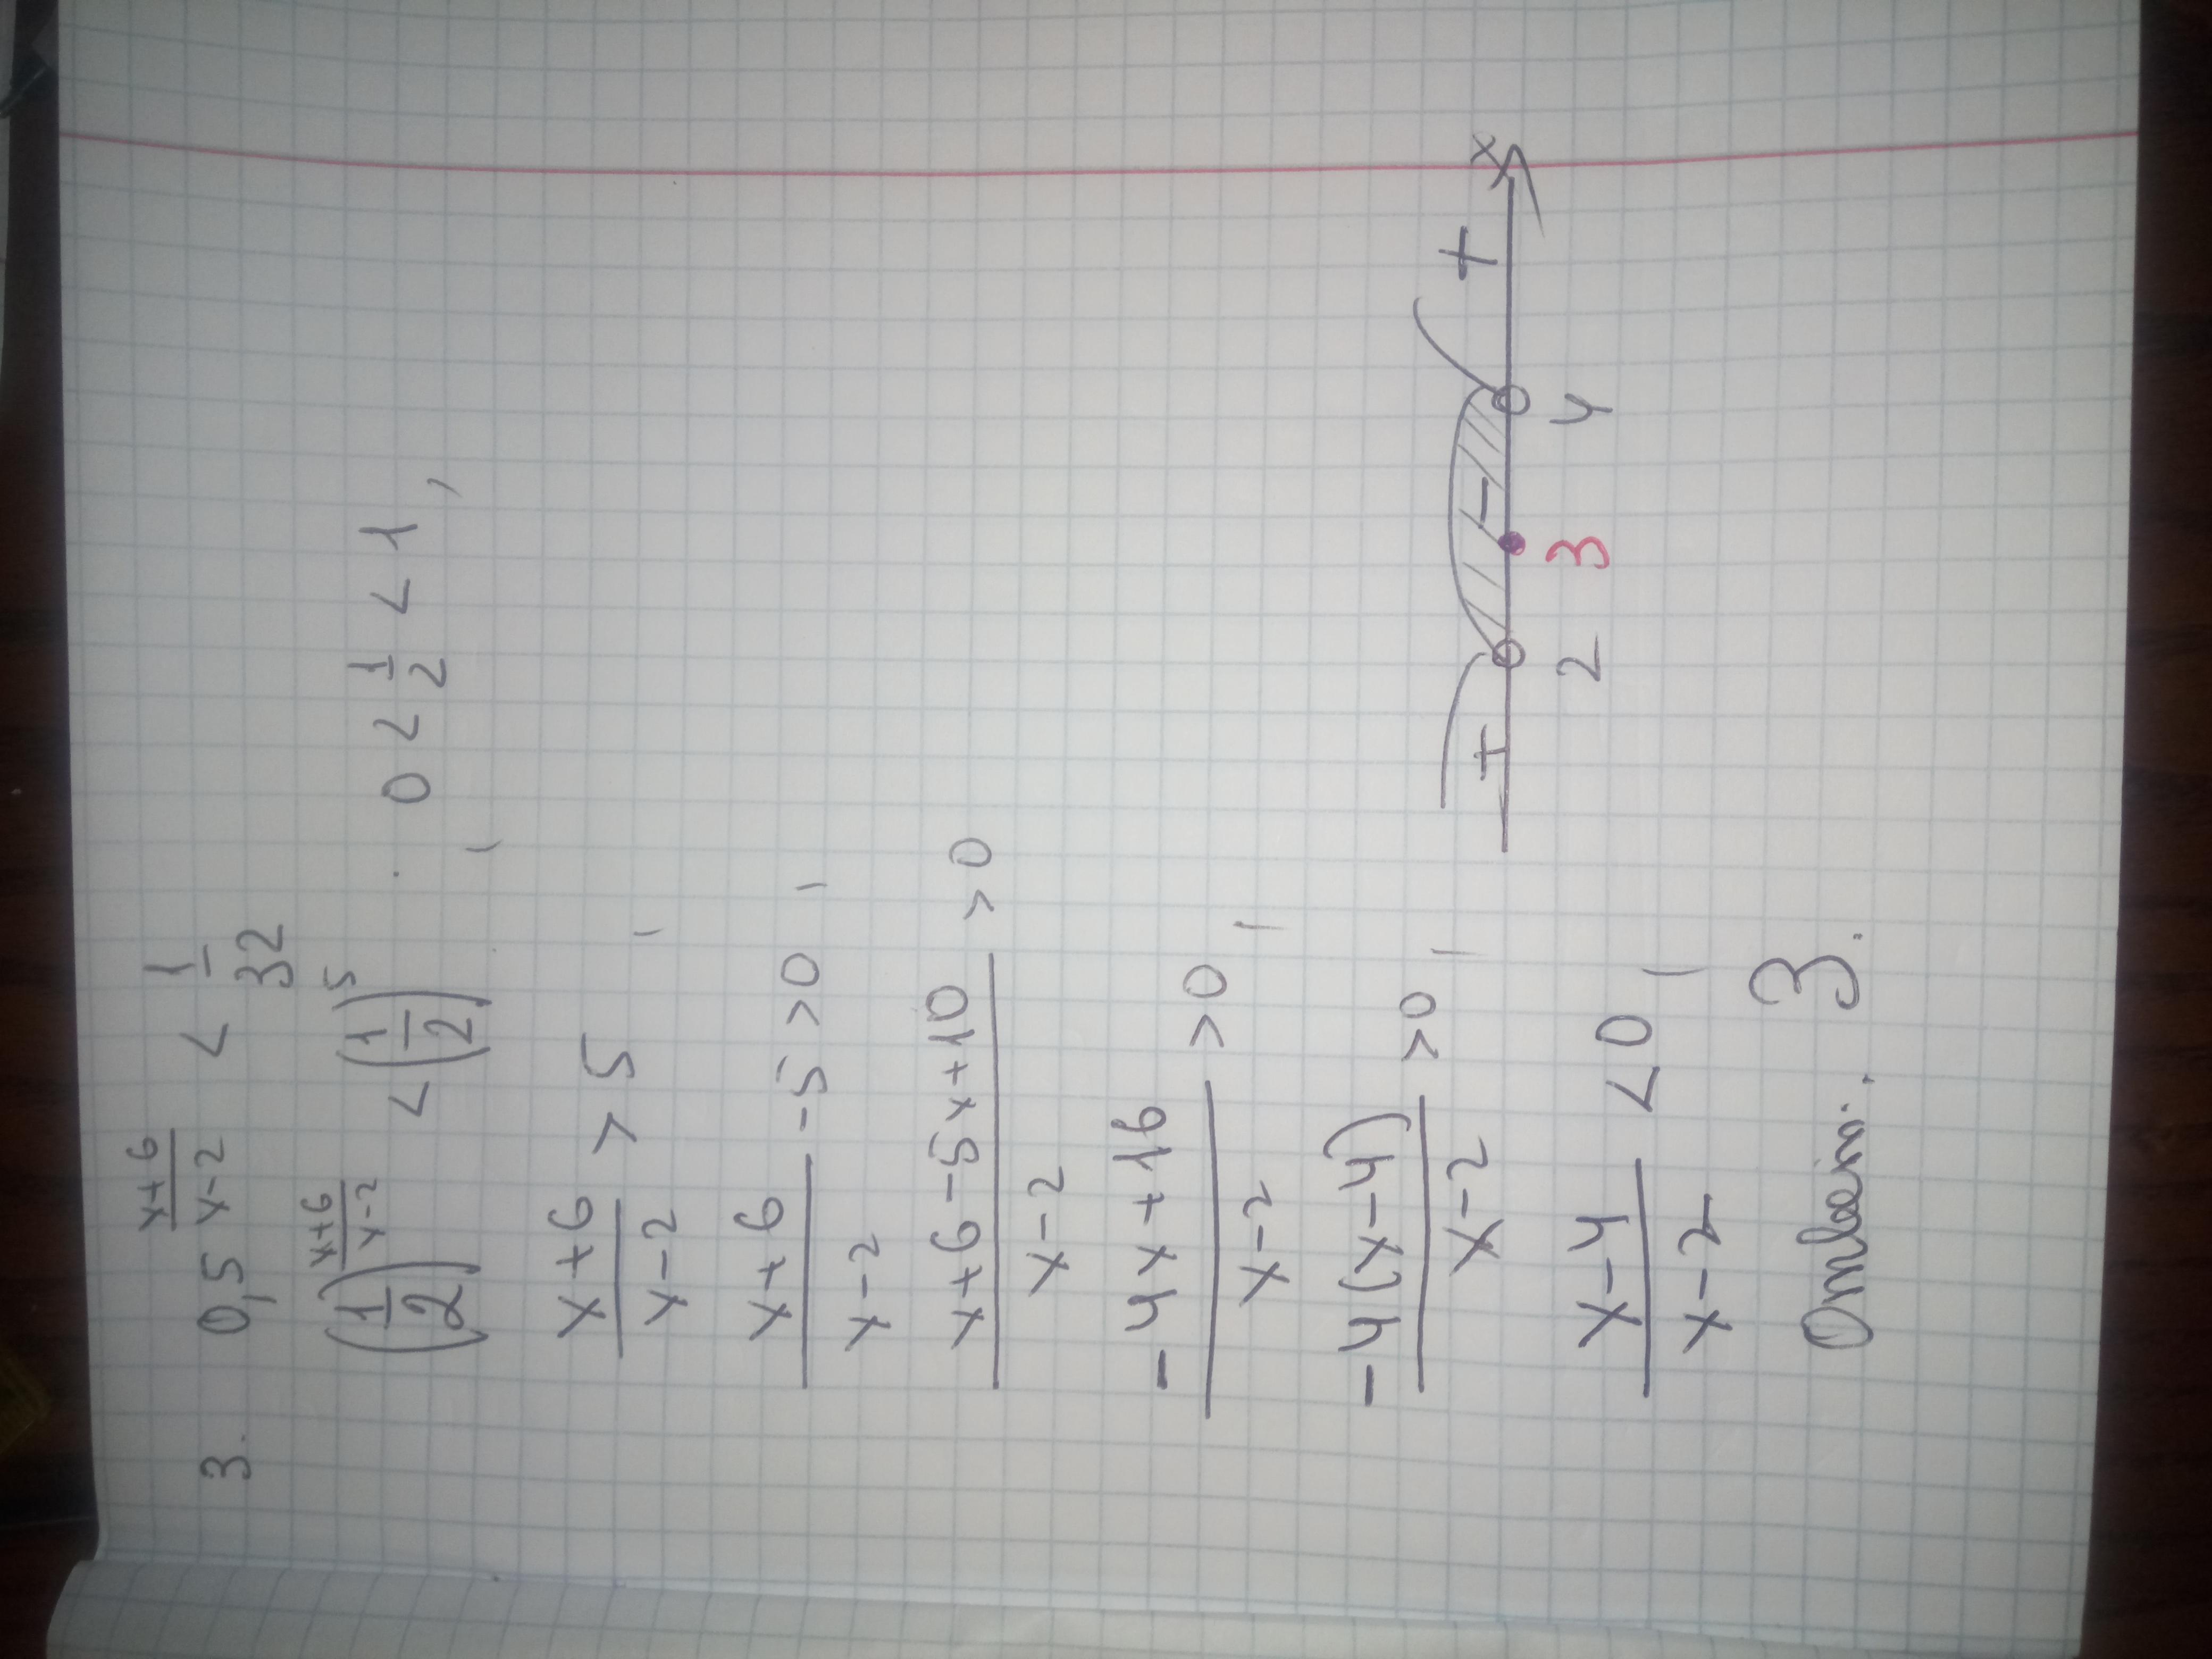 3. 0,5^((x+6)/(x-2)) < 1/32
(1/2)^((x+6)/(x-2)) < (1/2)^5, 0 < 1/2 < 1,
(x+6)/(x-2) > 5,
(x+6)/(x-2) -5 >0,
(x+6-5x+10)/(x-2) >0
(-4x+16)/(x-2) >0,
(-4(x-4))/(x-2) >0,
(x-4)/(x-2) <0,
+ - + x
2 3 4
Ответ: 3.